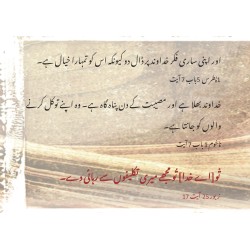 اور اپنی ساری فکر خداوند پر ڈال دو کیونکہ اس کو تمہارا خیال ہے۔
۱ پطرس 5 باب 7 آیت
خداوند بھلا ہے اور مصیبت کے دن پناہ گاہ ہے۔ وہ اپنے توکل کرنے
والوں کو جانتا ہے۔
ناحوم 1 باب 7 آیت
تُو اے خدا! تُو مجھے میری تکلیفوں سے رہائی دے۔
زبور 25 آیت 17